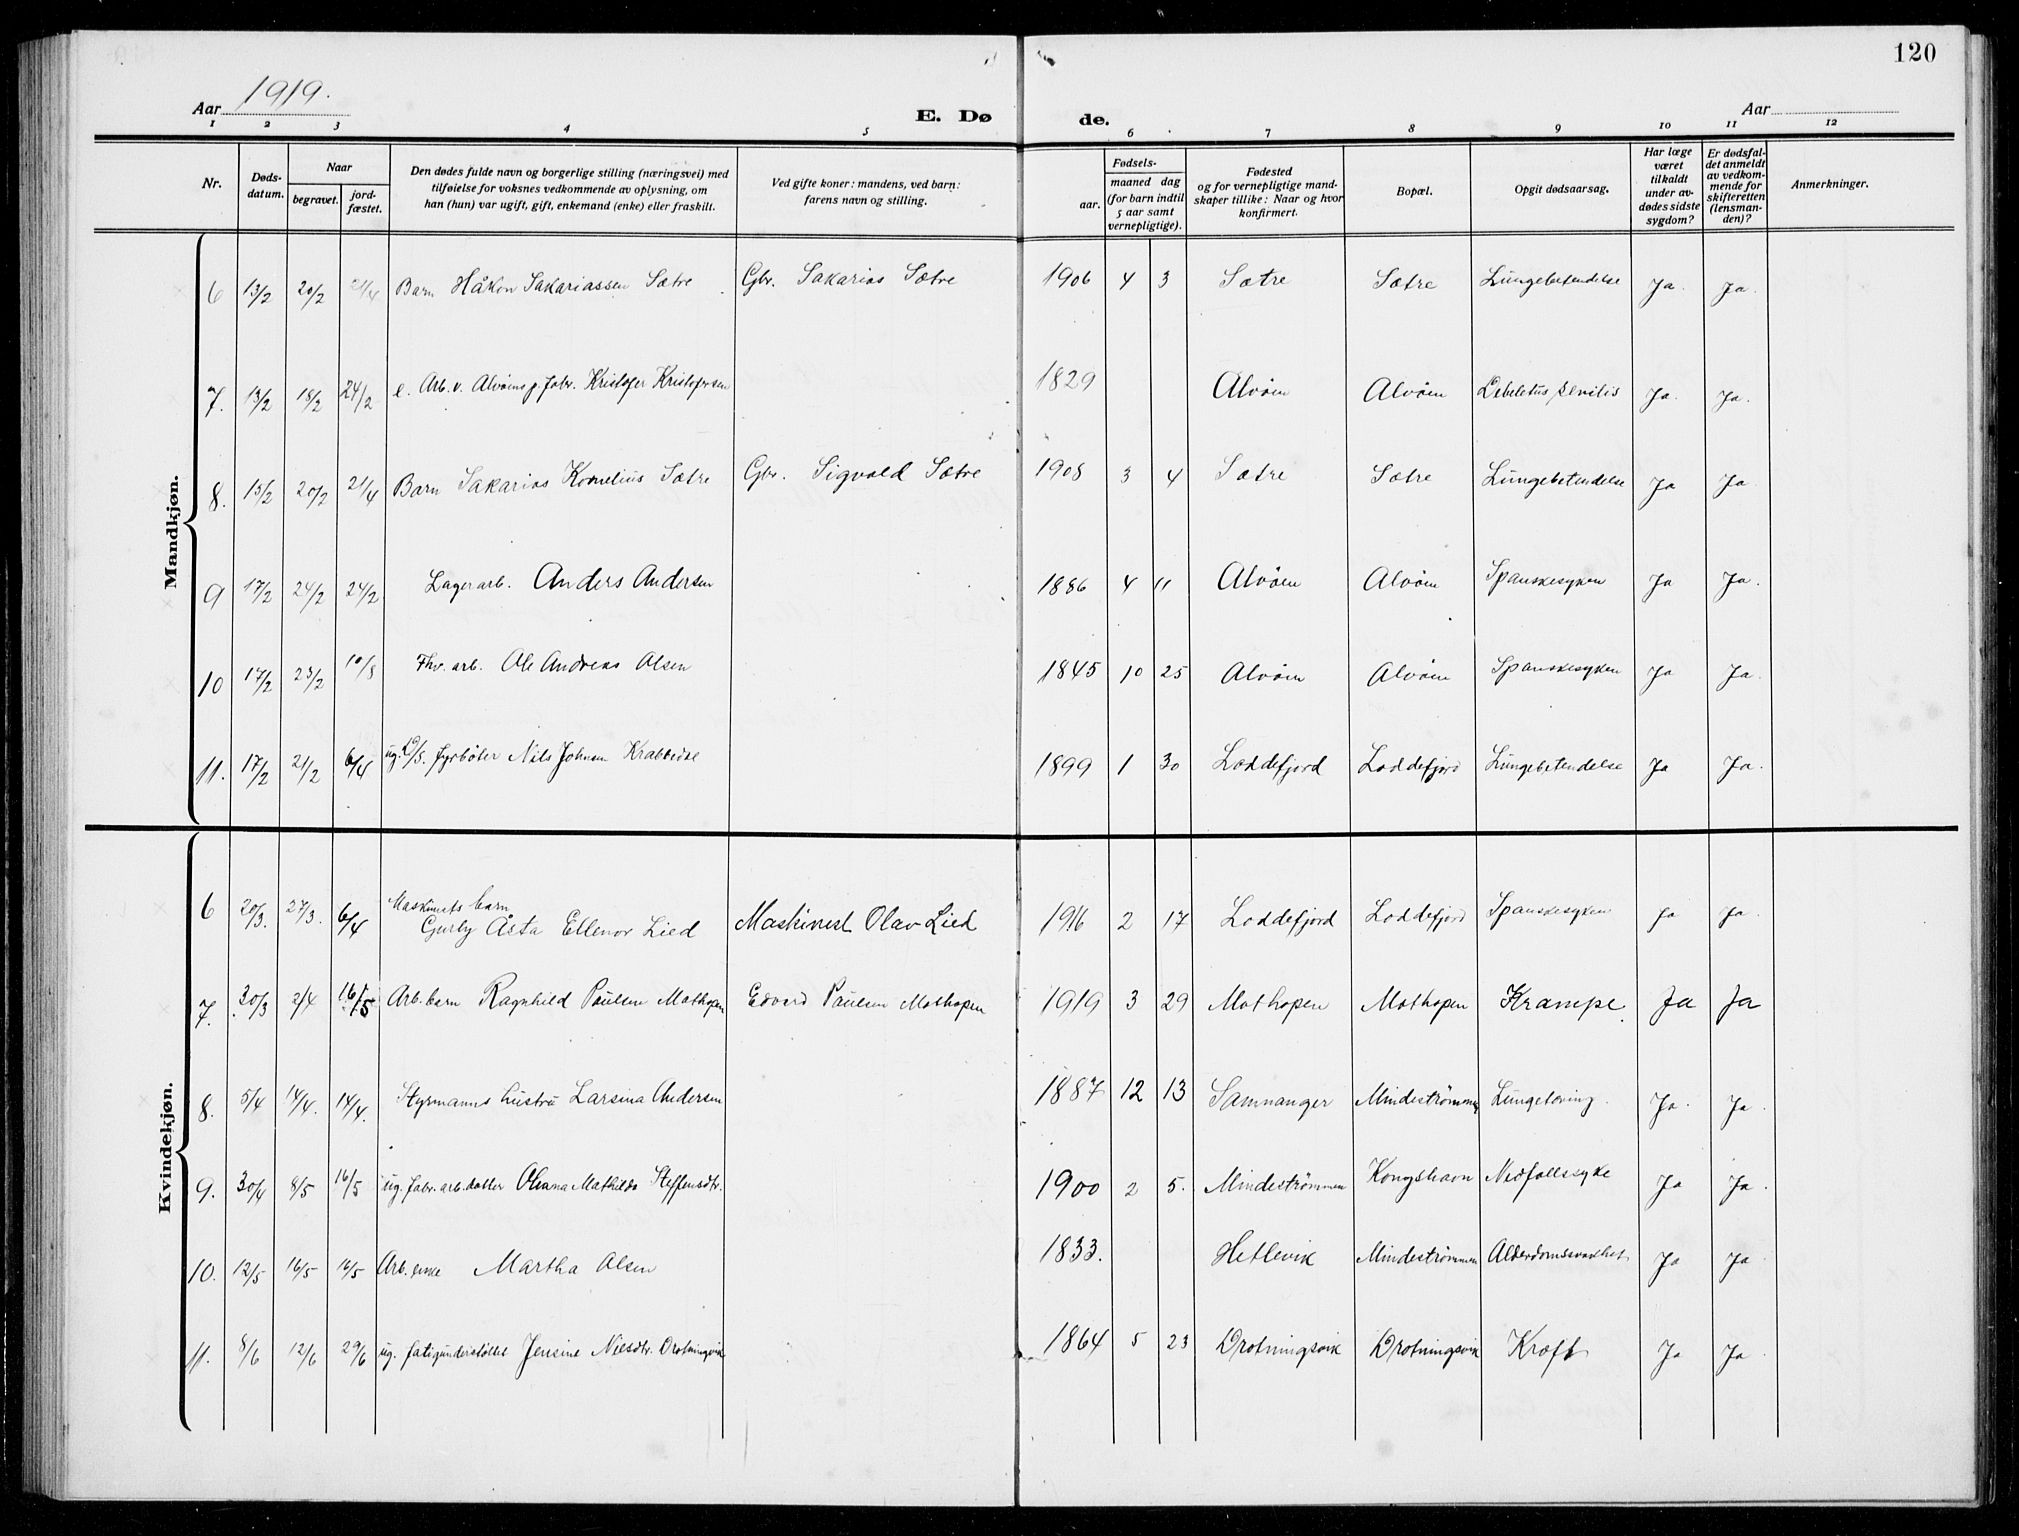 120
Aar 1919.
E. Dø de.
Aar
1 2 3 4 5 6 7 8 9 10 11 12
Nr.
Døds-
datum.
Naar
begravet.
jord-
fæstet.
Den dødes fulde navn og borgerlige stilling (næringsvei) med
tilføielse for voksnes vedkommende av oplysning, om
han (hun) var ugift, gift, enkemand (enke) eller fraskilt.
Ved gifte koner: mandens, ved barn:
farens navn og stilling.
Fødsels-
aar.
maaned dag
(for barn indtil
5 aar samt
vernepligtige).
Fødested
og for vernepligtige mand-
skaper tillike: Naar og hvor
konfirmert.
Bopæl.
Opgit dødsaarsag.
Har læge
været
tilkaldt
under av-
dødes sidste
sygdom?
Er dødsfal-
det anmeldt
av vedkom-
mende for
skifteretten
(lensman-
den)?
Anmerkninger.
Mandkjøn.
6 13/2 20/2 21/4 Barn Håkon Sakariassen Sætre Gbr. Sakarias Sætre 1906 4 3 Sætre Sætre Lungebetendelse Ja. Ja.
7. 13/2 18/2 24/2 e. Arb. v. Alvøens p. fabr. Kristofer Kristofersen 1829 Alvøen Alvøen Ja. Ja.
8. 15/2 20/2 21/4 Barn Sakarias Kornelius Sætre Gbr. Sigvald Sætre 1908 3 4 Sætre Sætre Lungebetendelse Ja Ja.
9 17/2 24/2 24/2 Lagerarb. Anders Andersen 1886 4 11 Alvøen Alvøen Spanskesyken Ja Ja.
10 17/2 23/2 10/8 Fhv. arb. Ole Andreas Olsen 1845 10 25 Alvøen Alvøen Spanskesyken Ja Ja.
11. 17/2 21/2 6/4 ug. fyrbøter Nils Johnsen 1899 1 30 Loddefjord Loddefjord Lungebetendelse Ja Ja.
Kvindekjøn.
6 20/3. 27/3. 6/4 Maskinists barn
Gerly Åsta Ellenor Lied Maskinist Olav Lied 1916 2 17 Loddefjord Loddefjord Spanskesyken Ja Ja.
7. 30/3 2/4 16/5 Arb. barn Ragnhild Paulsen Mathopen Edvard Paulsen Mathopen 1919 3 29 Mathopen Mathopen Krampe. Ja Ja
8. 5/4 14/4. 14/4. Styrmanns hustru Larsina Andersen 1887 12 13 Samnanger Mindestrømmen Lungetæring. Ja. Ja.
9. 30/4 8/5 16/5 ug. fabr. arb. datter Olianna Mathilda Steffensdtr. 1900 2 5. Mindestrømmen Kongshavn Nedfallssyke Ja Ja.
10. 12/5 16/5 16/5 Arb. enke Martha Olsen 1833. Hetlevik Mindestrømmen Alderdomssvakhet Ja Ja.
11. 8/6 12/6 29/6 ug. fatigunderstøttet Jensine Nilsdtr. Drotningvik 1864 5 23 Drotningsvik Drotningsvik Kræft Ja Ja.